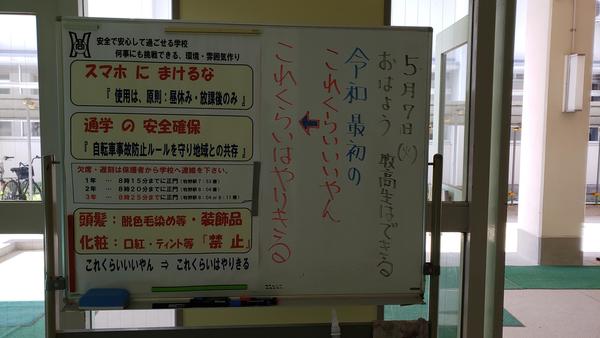 安全で安心して過ごせる学校
何事にも挑戦できる、環境・雰囲気作り
スマホ に まけるな
『 使用は、原則：昼休み・放課後のみ 』
通学 の 安全確保
『 自転車事故防止ルールを守り地域との共存 』
欠席・遅刻は保護者から学校へ連絡を下さい。
1年 … 8時15分までに正門
2年 … 8時20分までに正門
3年 … 8時25分までに正門
頭髪：脱色毛染め等・装飾品
化粧：口紅・ティント等「禁止」
これくらいいいやん ⇒ これくらいはやりきる
5月7日(火)
おはよう 牧高生はできる
令和最初の
これくらいいいやん
←
これくらいはやりきる